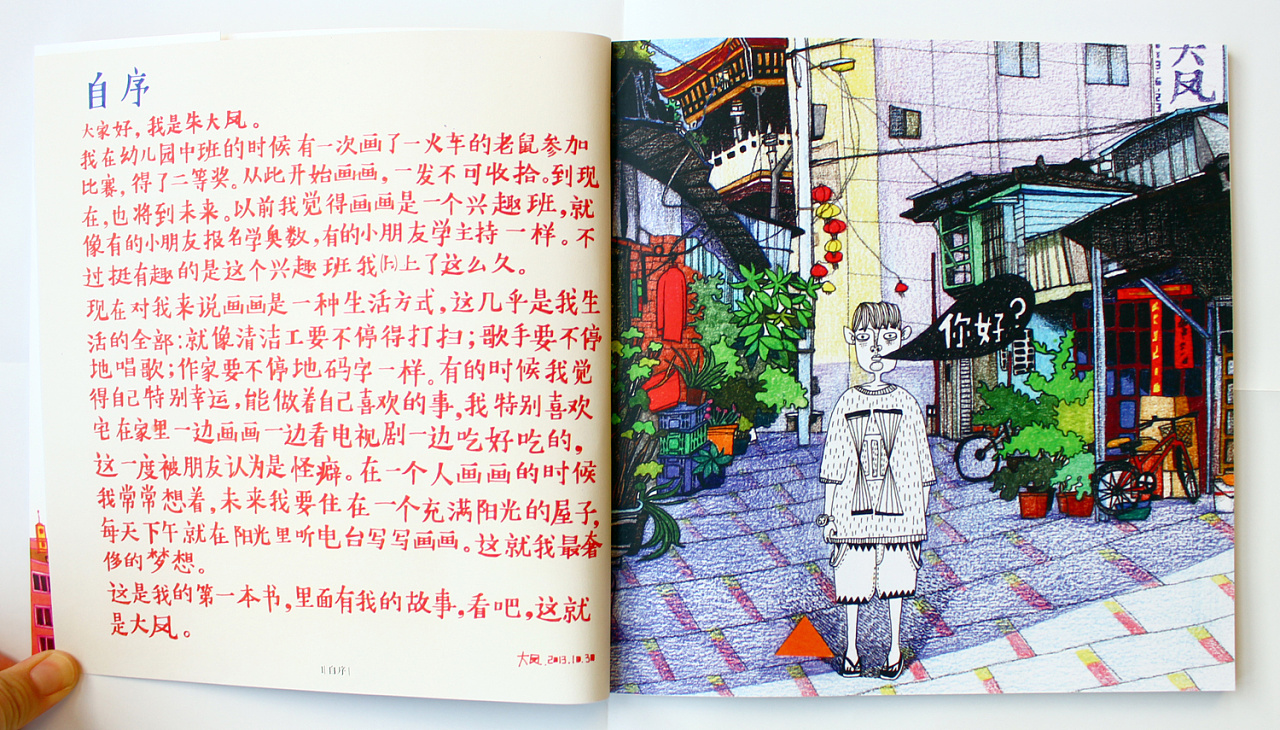 自序
大家好，我是朱大凤。
我在幼儿园中班的时候有一次画了一火车的老鼠参加
比赛，得了二等奖。从此开始画画，一发不可收拾。到现
在，也将到未来。以前我觉得画画是一个兴趣班，就
像有的小朋友报名学奥数，有的小朋友学主持一样。不
过挺有趣的是这个兴趣班我(一)上了这么久。
现在对我来说画画是一种生活方式，这几乎是我生
活的全部：就像清洁工要不停得打扫；歌手要不停
地唱歌；作家要不停地码字一样。有的时候我觉
得自己特别幸运，能做着自己喜欢的事，我特别喜欢
宅在家里一边画画一边看电视剧一边吃好吃的，
这一度被朋友认为是怪癖。在一个人画画的时候
我常常想着，未来我要住在一个充满阳光的屋子，
每天下午就在阳光里听电台写写画画。这就我最奢
侈的梦想。
这是我的第一本书，里面有我的故事，看吧，这就
是大凤。
大凤 2013.10.30
自序
大凤
13.6.23
你好？